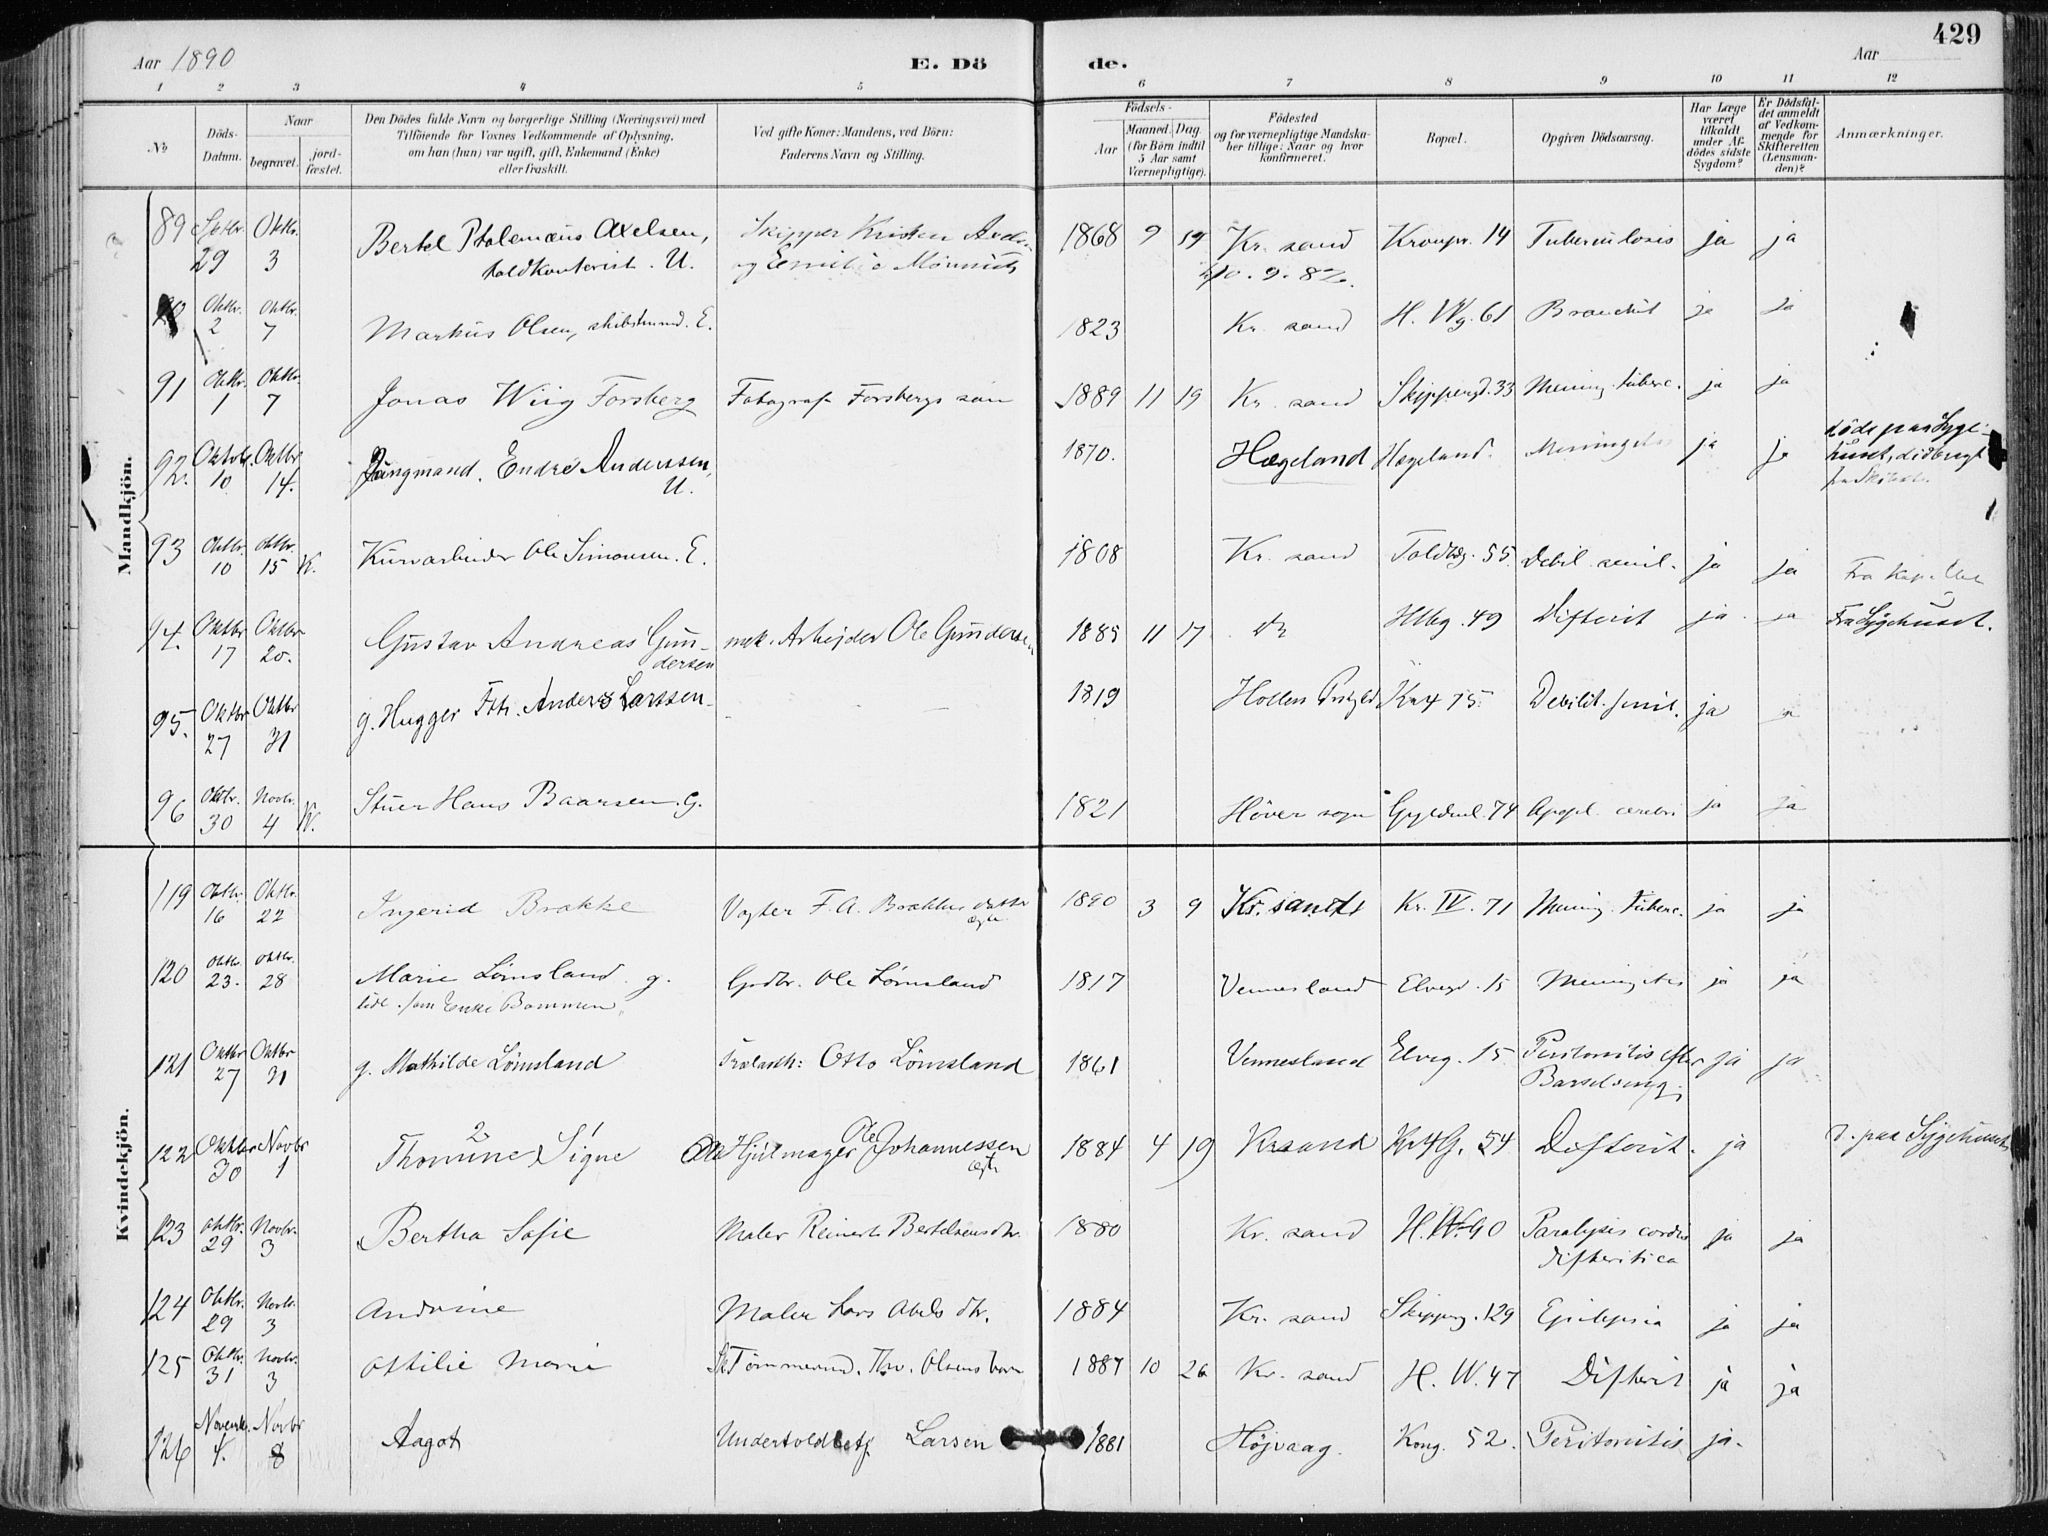 429
Aar 1890 E. Dö de. Aar
1 2 3 4 5 6 7 8 9 10 11 12
No
Döds-Datum.
Naar
begravet. jord-fæstet.
Den Dödes fulde Navn og borgerlige Stilling (Næringsvei) med
Tilföiende for Voxnes Vedkommende af Oplysning,
om han (hun) var ugift, gift, Enkemand (Enke)
eller fraskilt.
Ved gifte Koner: Mandens, ved Börn:
Faderens Navn og Stilling.
Födsels-
Aar
Maaned. Dag.
(for Börn indtil
5 Aar samt
Værnepligtige).
Födested
og for værnepligtige Mandska-
ber tillige: Naar og hvor
konfirmeret.
Bopæl.
Opgiven Dödsaarsag.
Har Læge
været
tilkaldt
under Af-
dödes sidste
Sygdom?
Er Dödsfal-
det anmeldt
af Vedkom-
mende for
Skifteretten
(Lensman-
den)?
Anmærkninger.
Mandkjön.
89 29 Oktbr. 3 Bertel Ptolemæus Axelsen, toldkontorist. U. Skipper Kristen 1868 9 19 Kr. sand Kronpr. 14 Tuberculosis ja ja
Oktbr. 2 Oktbr. 7 Markus Olsen, skibstmmd. E. 1823 Kr. sand H. Wg. 61 Bronchit ja ja
91 Oktbr. 1 Oktbr. 7 Jonas Wiig Forsberg Fotograf Forsbergs søn 1889 11 19 Kr. sand Skipperg. 33 Mening. tuberc. ja ja
92. Oktobr. 10 Oktbr. 14. Jungmand. Endre Anderssen, U. 1870. Hægeland Hægeland. Meningitis ja ja døde paa Syge-
huset, 
93 Oktbr. 10 Oktbr. 15 K. Kurvarbeider Ole Simonsen. E. 1808 Kr. sand Toldbg. 55. Debil. senil. ja ja Fra Kapellet
94. Oktbr 17 Oktbr 20. Gustav Andreas Gun-
dersen mek. Arbejder Ole Gundersen 1885 11 17 do Hlbg. 49 Difterit ja ja Fra Sygehuset.
95. Oktbr 27 Oktbr 31 g. Hugger Anders Larssen 1819 Hollen 75 Debilit. senil. ja ja
96 Oktbr. 30 Novbr. 4 K. Stuer Hans Baarsen. g. 1821 Höver sogn Gyldenl. 74 Apopl. cerebri ja ja
Kvindekjön.
119 Oktbr. 16 Oktbr. 22 Ingerid Brække Vogter F. A. Brækkes datter ægte 1890 3 9 Kr. sand Kr. IV. 71 Mening. tuberc. ja ja
120 Oktbr. 23. Oktbr. 28 Marie Lömsland g. Grdbr. Ole Lömsland 1817 Vennesland Elvegd. 15 Meningitis ja ja
tidl. som Enke Bommen.
121 Oktbr 27 Oktbr 31 g. Mathilde Lömsland Otto Lömsland 1861 Vennesland Elveg. 15 Peritonitis efter
Barselseng. ja ja
122 Oktbr 30 Novbr 1 Thomine Signe Hjulmager Ole Johannessen ægte 1884 4 19 Krsand 54 Difterit. ja d. paa Sygehuset
123 Oktbr. 29 Novbr. 3 Bertha Sofie Maler Reinert Bertelsens dtr. 1880 Kr. sand H. W. 90 Paralysis cordis
difteritica ja ja
124 Oktbr. 29 Novbr. 3 Andrine Maler Lars Abels dtr. 1884 Kr. sand Skipperg. 129 Epilepsia ja ja
125 Oktbr. 31 Novbr. 3 Ottilie Marie Tömmermd. Thv. Olsens barn 1887 10 26 Kr. sand H. W. 47 Difterit ja ja
126 Novembr. 4. Novbr 8 Aagot Undertoldbetj Larsen 1881 Höjvaag. Kong. 52. Peritonitis ja.